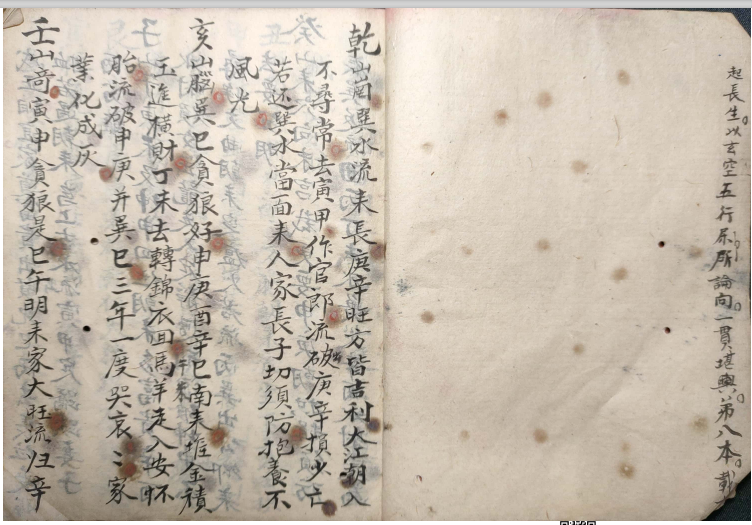 起長生以玄空五行尿所論向一貫堪輿第八本載
乾山崗巽水流来長庚辛旺方皆吉利大江潮入
不尋常去寅甲作官郎流破庚辛損少亡
若还巽水當面来人家長子切須防抱養不
風光
亥山腦巽巳貪狼好申庚酉辛巳南来堆金積
玉進橫財丁未去轉錦衣回馬羊走入安怀
胎流破申庚并巽巳三年一度哭哀〻家
業化成灰
壬山奇寅申貪狼是巳午明来家大旺流归辛